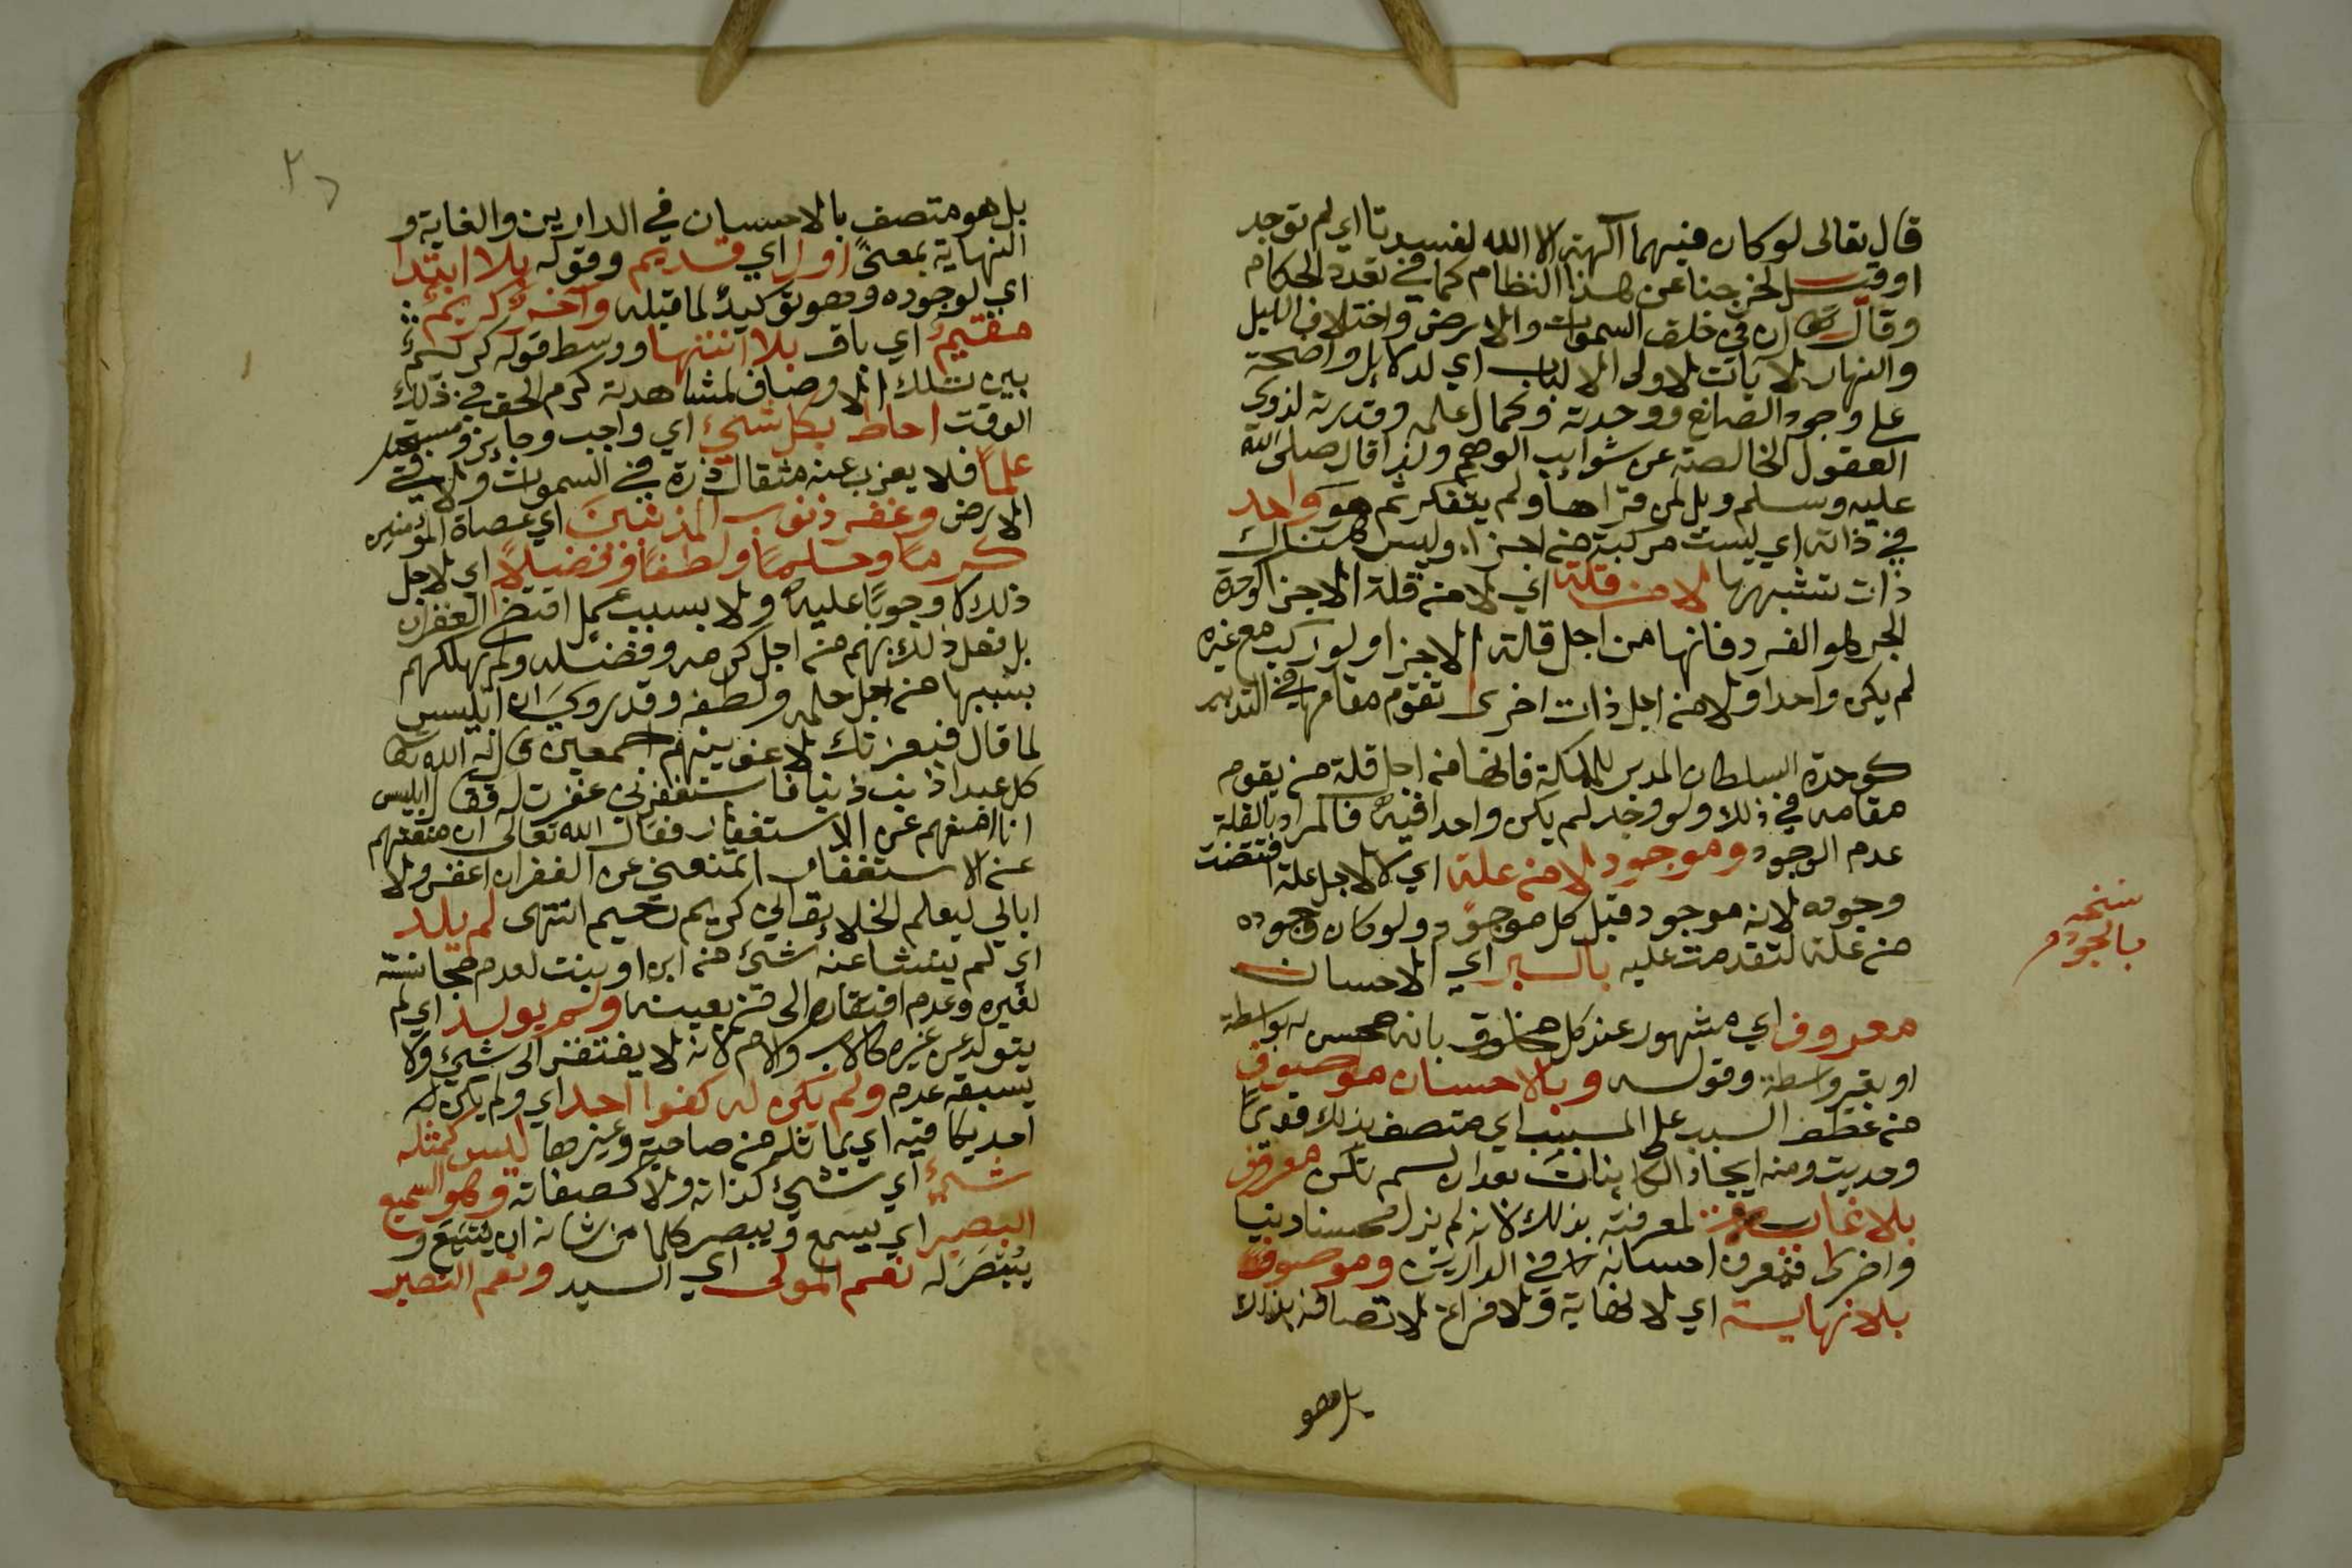 قال تعالى لو كان فيهما آلهة الا الله لفسدتا اي لم توجد
لخرجنا عن هذا النظام كما في تعدد الحكام
وقال ان في خلق السموات والارض واختلاف الليل
والنهار لايات لاولى الالباب اي لدلايل واضحة
على وجود الصانع ووحدته وكمال علمه وقدرته لذوي
العقول الخالصة عن شوايب الوهم ولذا قال صلى الله
عليه وسلم ويل لمن قراها ولم يتفكر ثم هو واحد
في ذاته اي ليست مركبة من اجزاء وليس هناك
ذات تشبهها لا من قلة اي لا من قلة الاجزا كوحدة
الجوهر الفرد فانها من اجل قلة الاجزا ولو ركب مع غيره
لم يكن واحدا ولا من اجل ذات اخرى تقوم مقامها في التدبير
كوحدة السلطان المدبر للمملكة فانها من اجل قلة من يقوم
مقامه في ذلك ولو وجد لم يكن واحدا فيه فالمراد بالقلة
عدم الوجود وموجود لا من علة اي لا لاجل علة اقتضت
وجوده لانه موجود قبل كل موجود ولو كان وجوده
من علة لتقدمت عليه بالبر اي الاحسان
معروف اي مشهور عند كل مخلوق بانه محسن له بواسطة
او بغير واسطة وقوله وبالاحسان موصوف
من عطف السبب على المسبب اي متصف بذلك قديما
وحديث ومنه ايجاد الكاينات بعد ان لم تكن معروف
بلا غاية لمعرفته بذلك لانه لم يزل محسنا دنيا
واخرى فتعرف احسانه في الدارين وموصوف
بلا نهاية اي لا نهاية ولا فراغ لاتصافه بذلك
بل هو
نسخه
بالجود
بل هو متصف بالاحسان في الدارين والغاية و
النهاية بمعنى اول اي قديم وقوله بلا ابتدا
اي لوجوده وهو توكيد لما قبله وآخر كريم
مقيم اي باق بلا انتها ووسط قوله كريم
بين تلك الاوصاف لمشاهدة كرم الحق في ذلك
الوقت احاط بكل شيء اي واجب وجايز ومستحيل
علما فلا يعزب عنه مثقال ذرة في السموات ولا في
الارض وغفر ذنوب المذنبين اي عصاة المؤمنين
كرما وحلما ولطفا وفضلا اي لاجل
ذلك لا وجوبا عليه ولا بسبب عمل اقتضى الغفران
بل فعل ذلك بهم من اجل كرمه وفضله ولم يهلكهم
بسببها من اجل حلمه ولطفه وقد روي ان ابليس
لما قال فبعزتك لاغوينهم اجمعين قال له الله تعالى
كل عبد اذنب ذنبا فاستغفرني غفرت له فقال ابليس
انا امنعهم عن الاستغفار فقال الله تعالى ان منعتهم
عن الاستغفار اتمنعني عن الغفران اغفر ولا
ابالي ليعلم الخلايق اني كريم رحيم انتهى لم يلد
اي لم ينشا عنه شيء من ابن او بنت لعدم مجانسته
لغيره وعدم افتقاره الى من يعينه ولم يولد اي لم
يتولد عن غيره كالاب والام لانه لا يفتقر الى شيء ولا
يسبقه عدم ولم يكن له كفوا احد اي ولم يكن له
احد يكافيه اي يماثله من صاحبة وغيرها ليس كمثله
شيء اي شيء كذاته ولا كصفاته وهو السميع
البصير اي يسمع ويبصر كلما من شانه ان يسمع و
يبصر له نعم المولى اي السيد ونعم النصير